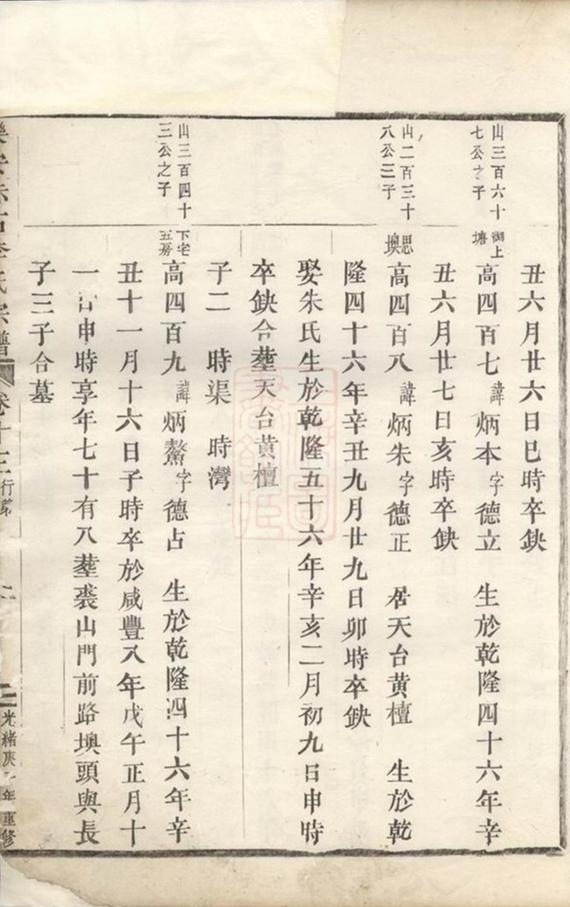 丑六月廿六日巳時卒缺
山三百六十
七公之子
湖上
塘
高四百七諱炳本字德立 生於乾隆四十六年辛
丑六月廿七日亥時卒缺
山二百三十
八公三子
思
墺
高四百八諱炳朱字德正 居天台黃檀 生於乾
隆四十六年辛丑九月廿九日卯時卒缺
娶朱氏生於乾隆五十六年辛亥二月初九日申時
卒缺合塟天台黃檀
子二 時渠 時灣
山三百四十
三公之子
下宅
五房
高四百九諱炳鰲字德占 生於乾隆四十六年辛
丑十一月十六日子時卒於咸豐八年戊午正月十
一日申時享年七十有八塟裘山門前路墺頭與長
子三子合墓
氏宗譜 卷十三 行第
光緒庚 年重修